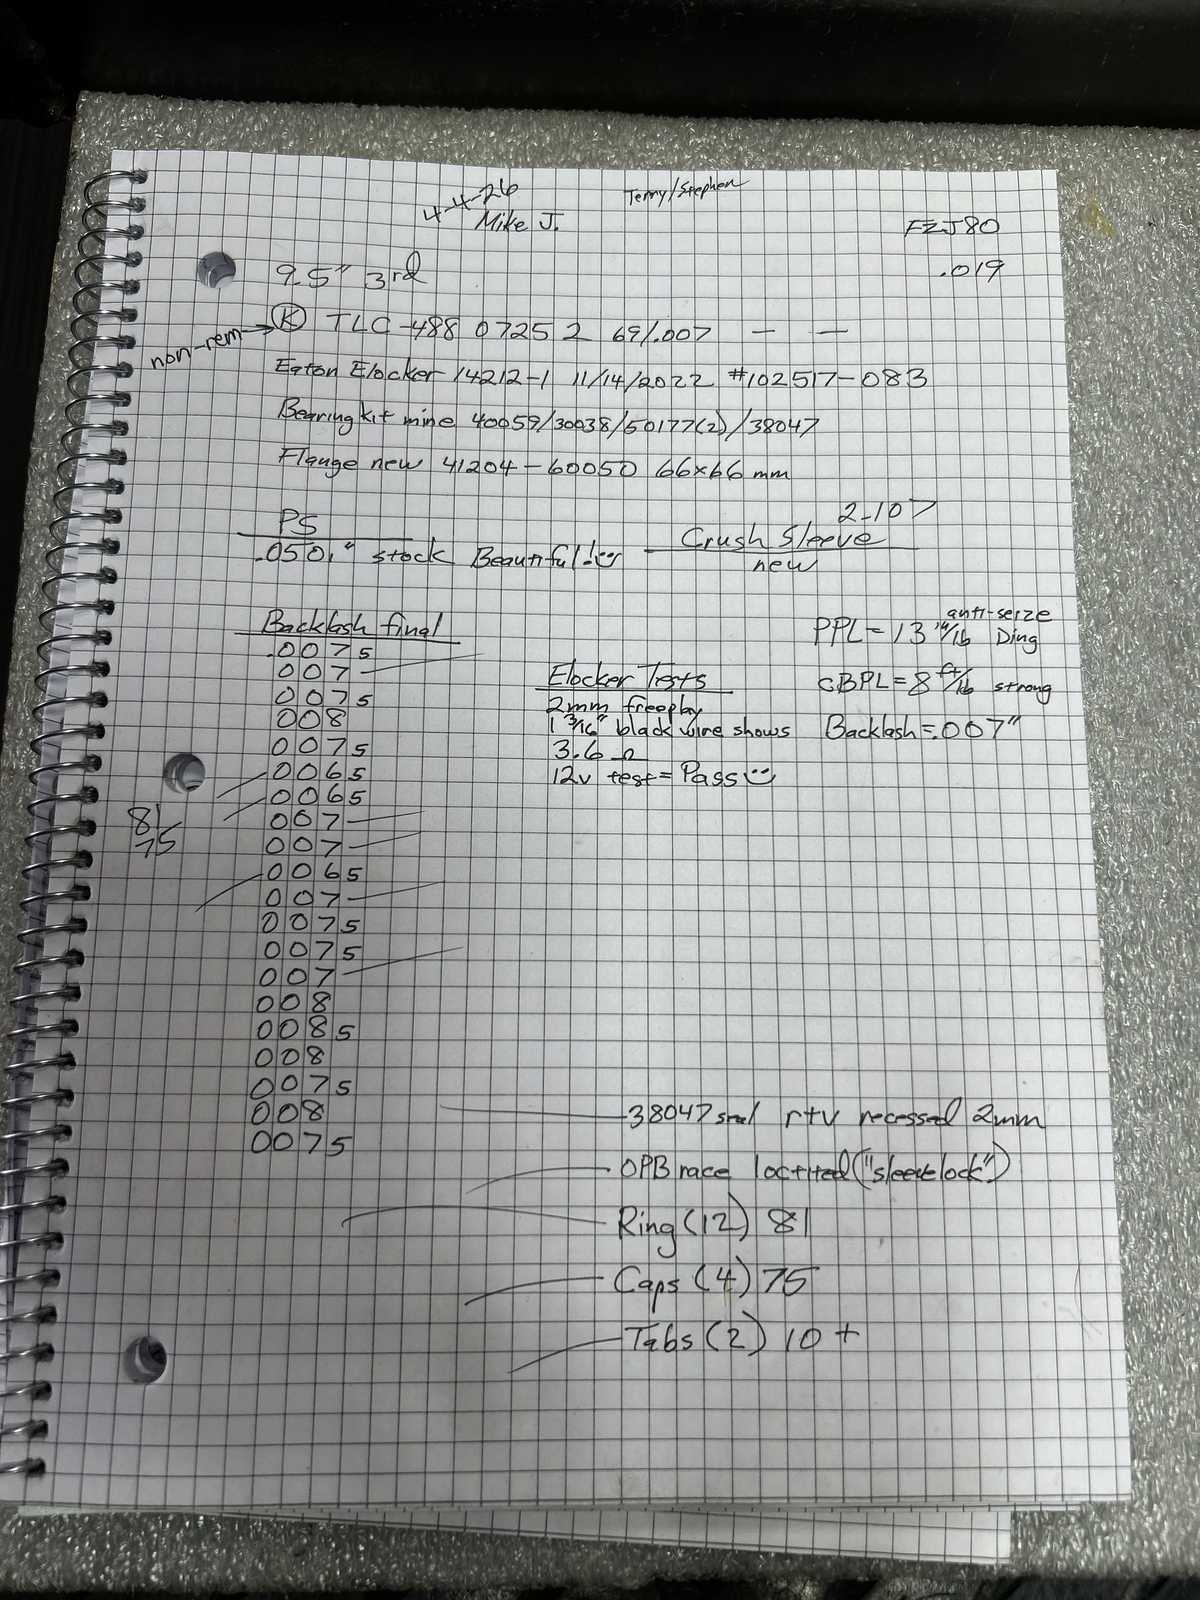 4-4-26
Mike J.
Terry/Stephen
FZJ80
.019
9.5" 3rd
non-rem → K TLC-488 07252 69/.007 — —
Eaton Elocker 14212-1 11/14/2022 #102517-083
Bearing kit mine 40059/30038/50177(2)/38047
Flange new 41204-60050 66x66 mm
PS
.050," stock Beautiful!
2-107
Crush Sleeve
new
Backlash final
.0075
007
0075
008
0075
0065
0065
007
007
0065
007
0075
0075
007
008
0085
008
0075
008
0075
81
75
Elocker Tests
2mm freeplay
1 3/16" black wire shows
3.6 Ω
12v test = Pass
anti-seize
PPL = 13 in/lb Ding
CBPL = 8 ft/lb strong
Backlash = .007"
38047 seal rtv recessed 2mm
OPB race loctited ("sleevelock")
Ring (12) 81
Caps (4) 75
Tabs (2) 10 +